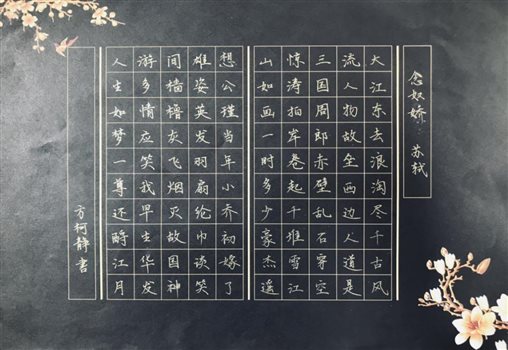 念奴娇 苏轼
大江东去浪淘尽千古风
流人物故垒西边人道是
三国周郎赤壁乱石穿空
惊涛拍岸卷起千堆雪江
山如画一时多少豪杰遥
想公瑾当年小乔初嫁了
雄姿英发羽扇纶巾谈笑
间樯橹灰飞烟灭故国神
游多情应笑我早生华发
人生如梦一尊还酹江月
方柯静书